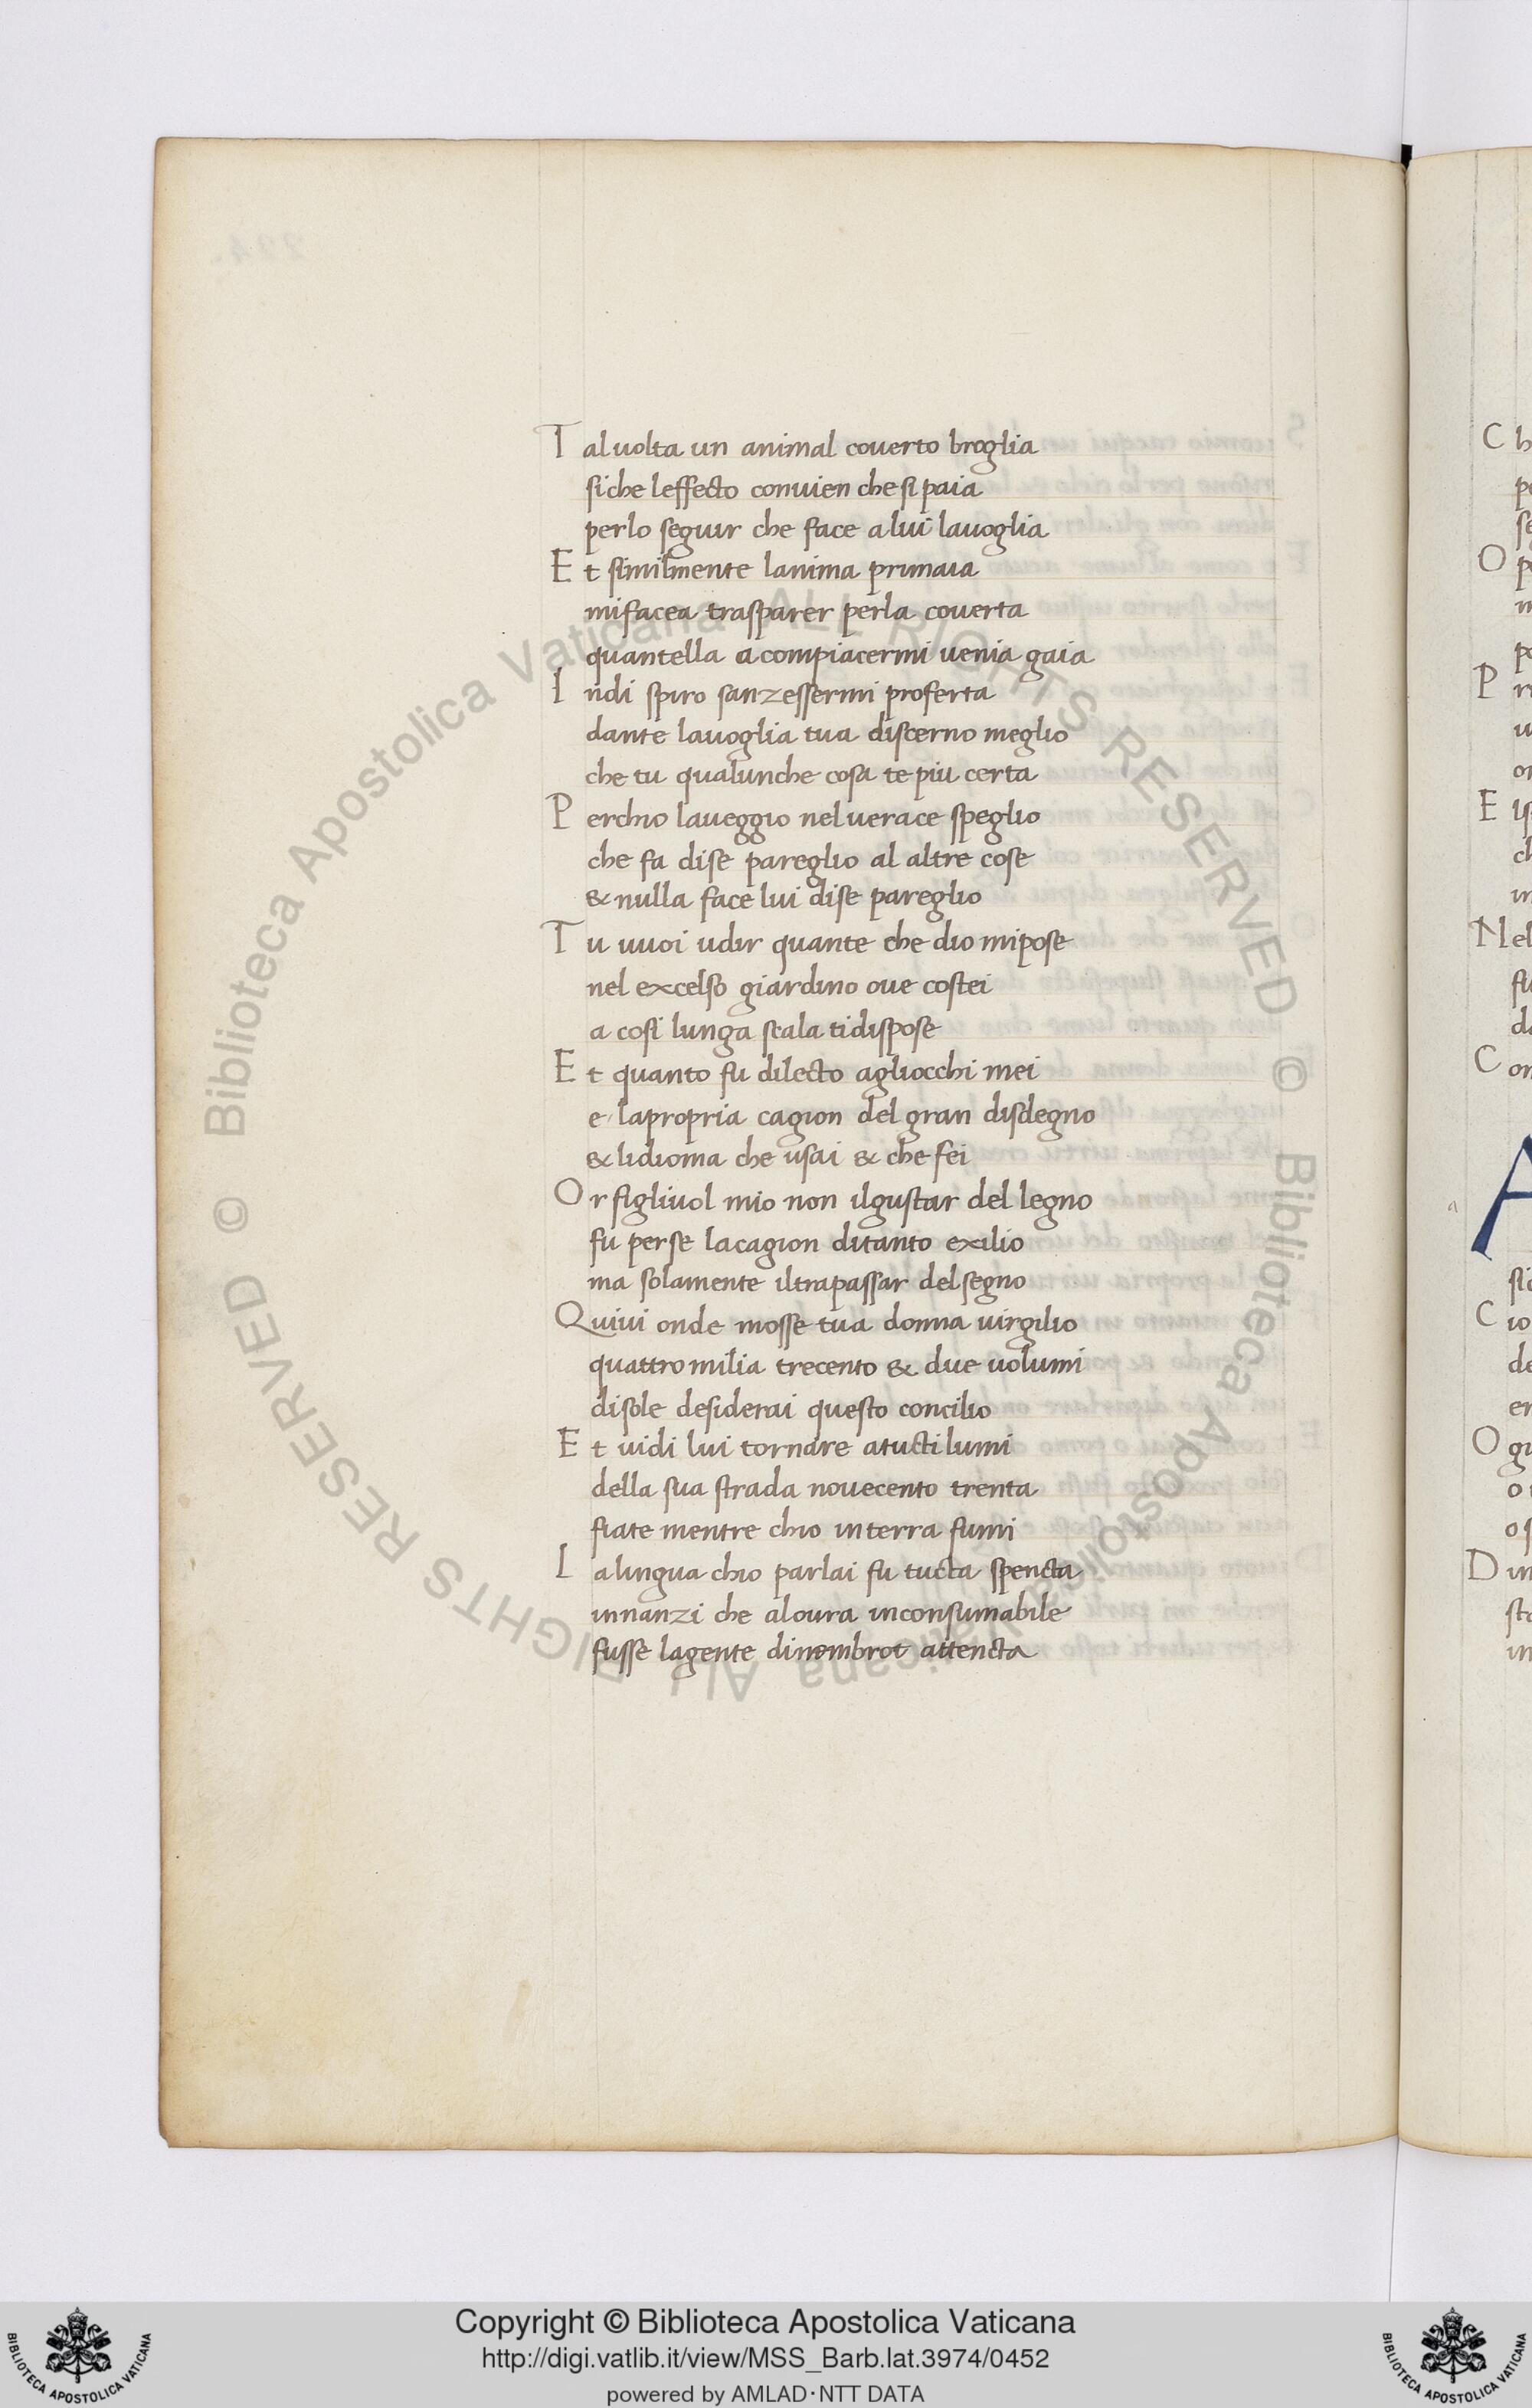 T al uolta un animal couerto broglia
si che leffecto conuien che si paia
perlo seguir che face a lui lauoglia
E t similmente lanima primaia
mi facea trasparer perla couerta
quantella a compiacermi uenia gaia
I ndi spiro sanzessermi proferta
dante lauoglia tua discerno meglio
che tu qualunche cosa te piu certa
P erchio laueggio nel uerace speglio
che fa dise pareglio al altre cose
& nulla face lui dise pareglio
T u uuoi udir quante che dio mi pose
nel excelso giardino oue costei
a cosi lunga scala ti dispose
E t quanto fu dilecto agliocchi mei
e lapropria cagion del gran disdegno
& lidioma che usai & che fei
O r figliuol mio non ilgustar del legno
fu per se lacagion ditanto exilio
ma solamente iltrapassar del segno
Q uiui onde mosse tua donna uirgilio
quattro milia trecento & due uolumi
di sole desiderai questo concilio
E t uidi lui tornare atucti lumi
della sua strada nouecento trenta
fiate mentre chio interra fumi
L a lingua chio parlai fu tucta spencta
innanzi che aloura inconsumabile
fusse lagente di nembrot attencta
Copyright © Biblioteca Apostolica Vaticana
http://digi.vatlib.it/view/MSS_Barb.lat.3974/0452
powered by AMLAD·NTT DATA
BIBLIOTECA APOSTOLICA VATICANA
BIBLIOTECA APOSTOLICA VATICANA
© Biblioteca Apostolica Vaticana ALL RIGHTS RESERVED © Biblioteca Apostolica Vaticana ALL RIGHTS RESERVED